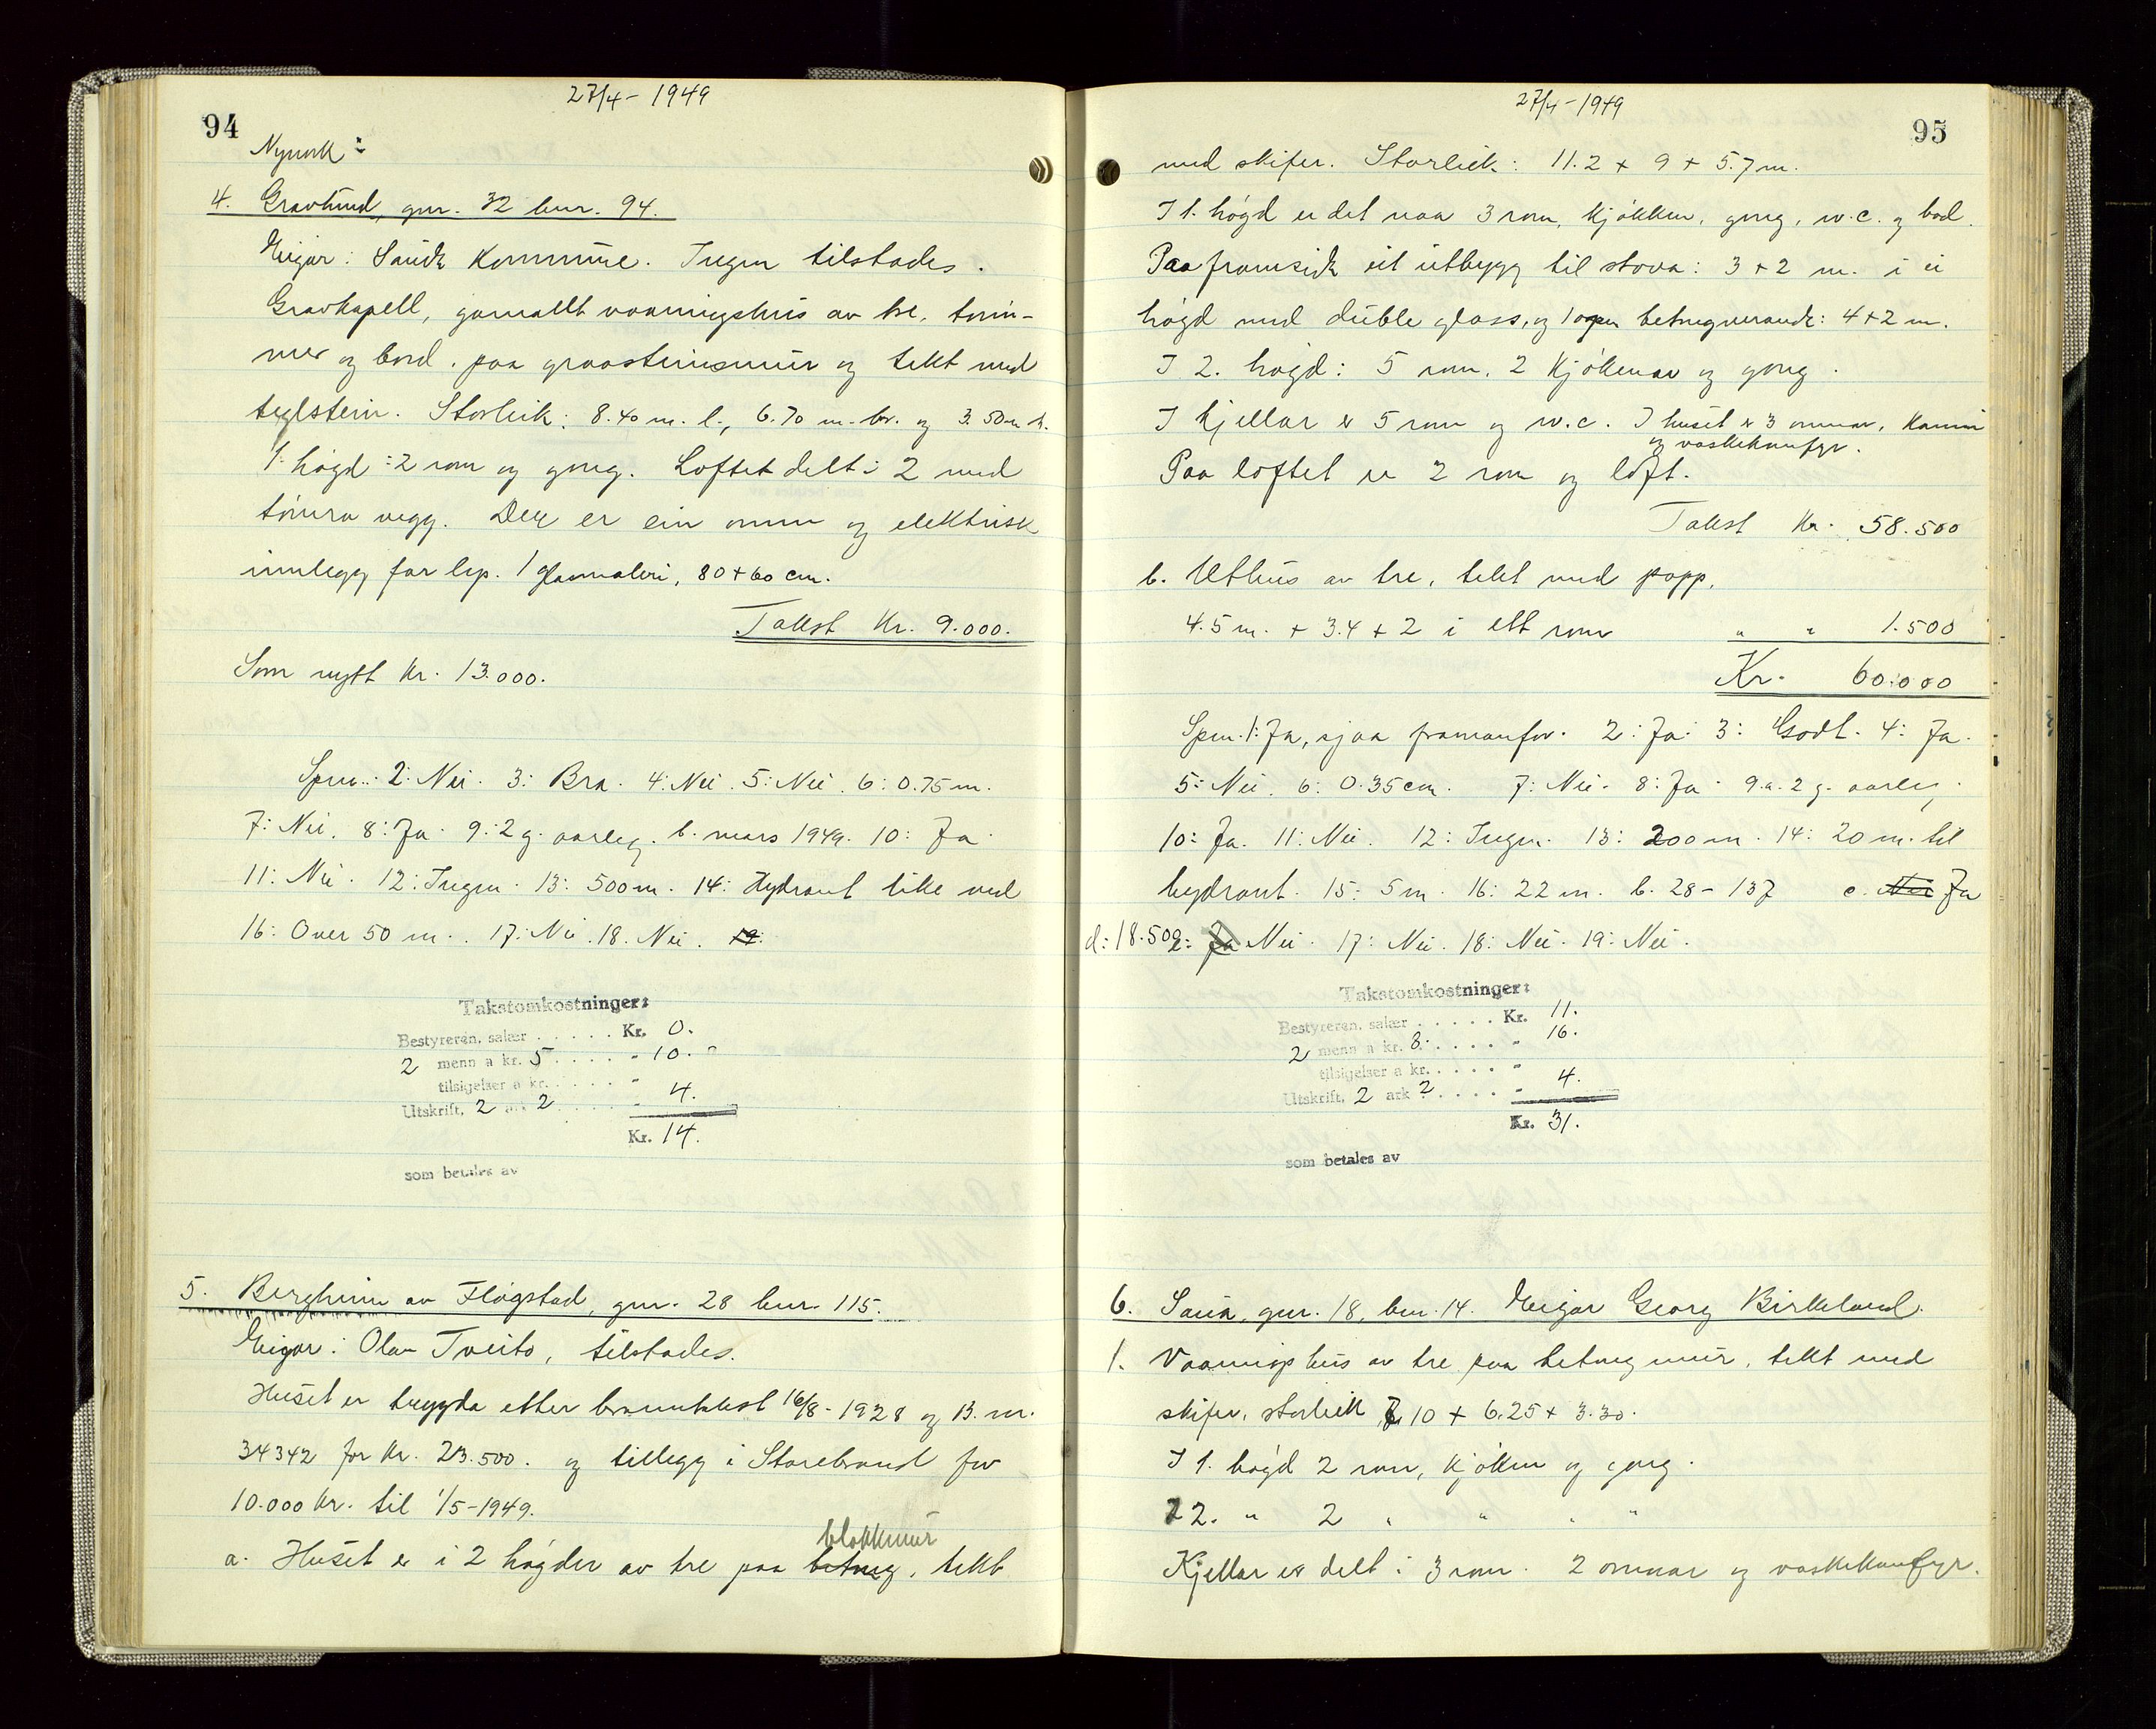 94
27/4 - 1949
Nyverk:
4. Gravlund, gnr. 32 bnr. 94.
Eigar: Saude Kommune. Ingen tilstades.
Gravkapell, gamallt vaaningshus av tre, tøm-
mer og bord, paa graasteinsmur og tekt med
teglstein. Storleik: 8.40 m. l., 6.70 m. br. og 3.50 m h.
1. høgd: 2 rom og gong. Loftet delt i 2 med
tømra vegg. Der er ein omn og elektrisk
innlegg for lys. 1 glasmaleri, 80 + 60 cm.
Takst Kr. 9.000.
Som nytt Kr. 13.000.
Spm.: 2: Nei. 3: Bra. 4: Nei. 5: Nei. 6: 0.75 m.
7: Nei. 8: Ja. 9: 2 g. aarleg. b. mars 1949. 10: Ja
11: Nei. 12: Ingen. 13: 500 m. 14: Hydrant like ved
16: Over 50 m. 17: Nei. 18. Nei. 19:
Takstomkostninger:
Bestyreren, salær . . . . . . Kr. 0.
2 menn a kr. 5 . . . . . " 10. "
tilsigelser a kr. . . . . . "
Utskrift, 2 ark 2 . . . . . - 4.
Kr. 14.
som betales av
5. Bergheim av Fløgstad, gnr. 28 bnr. 115.
Eigar: Olav Tveito, tilstades.
Huset er trygda etter branntakst 16/8 - 1928 og B. nr.
34342 for Kr. 23.500. og tillegg i Storebrand for
10.000 kr. til 1/5 - 1949.
blokkmur
a. Huset er i 2 høgder av tre paa betong, tekt
27/4 - 1949
95
med skifer. Storleik: 11.2 + 9 + 5.7 m.
I 1. høgd er det naa 3 rom, kjøkken, gong, w.c. og bad.
Paa framside eit utbygg til stova: 3 + 2 m. i ei
høgd med duble glass, og 1 open betongveranda: 4 + 2 m.
I 2. høgd: 5 rom, 2 kjøkenar og gong.
I kjellar er 5 rom og w.c. I huset er 3 omnar, kamin
og vaskekomfyr.
Paa loftet er 2 rom og loft.
Takst Kr. 58.500
b. Uthus av tre, tekt med papp,
4.5 m. + 3.4 + 2 i ett rom " " 1.500
Kr. 60.000
Spm. 1: Ja, sjaa framanfor. 2: Ja. 3: Godt. 4: Ja.
5: Nei. 6: 0.35 cm. 7: Nei. 8: Ja. 9.a. 2 g. aarleg.
10: Ja. 11: Nei. 12: Ingen. 13: 200 m. 14: 20 m. til
hydrant. 15: 5 m. 16: 22 m. b. 28 - 137 c. Nei Ja
d: 18.500 e: Ja Nei. 17: Nei. 18: Nei. 19: Nei.
Takstomkostninger:
Bestyreren, salær . . . . . Kr. 11.
2 menn a kr. 8. . . . . " 16.
tilsigelser a kr. . . . . "
Utskrift, 2 ark 2 . . . . - 4.
Kr. 31.
som betales av
6. Saua, gnr. 18, bnr. 14. Eigar Georg Birkeland.
1. Vaaningshus av tre paa betongmur, tekt med
skifer, storleik 10 + 6.25 + 3.30.
I 1. høgd 2 rom, kjøken og gong.
I 2. " 2 " " " "
Kjellar er delt i 3 rom. 2 omnar og vaskekomfyr.